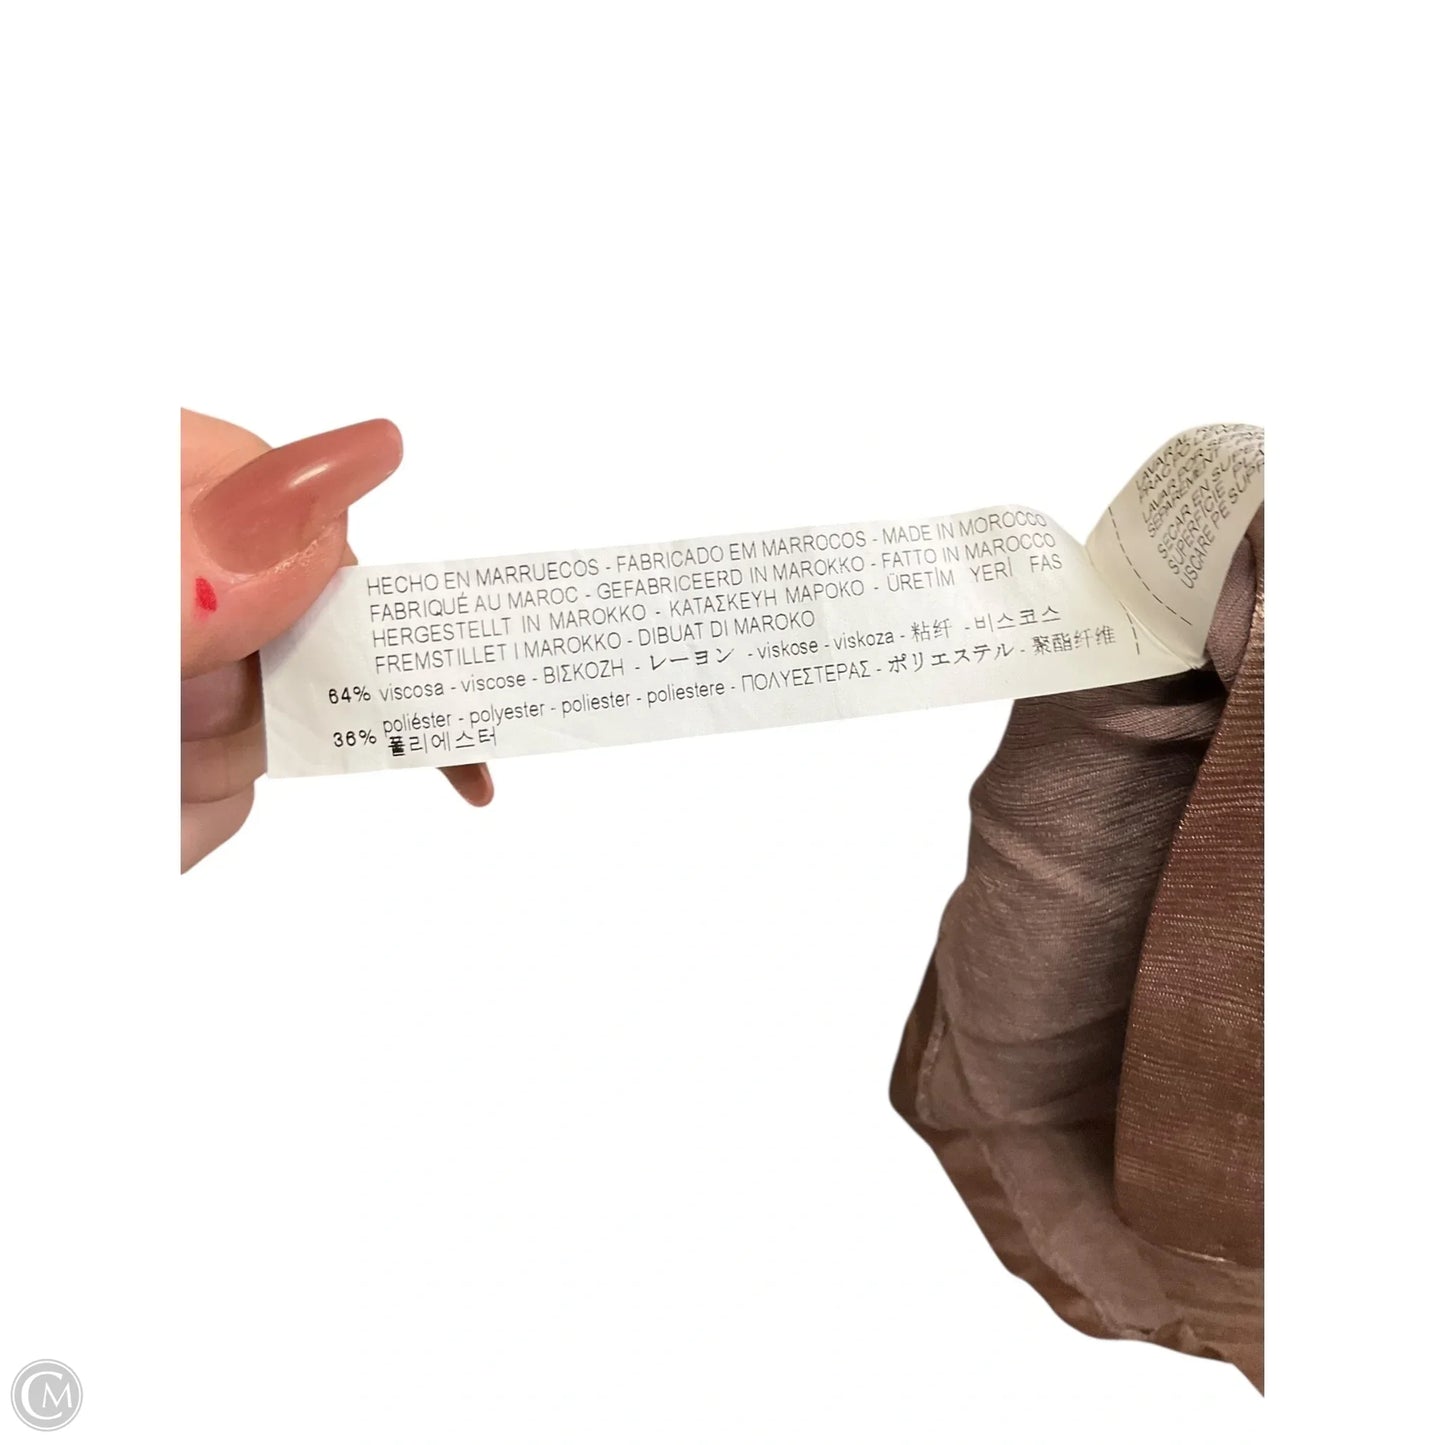 HECHO EN MARRUECOS - FABRICADO EM MARROCOS - MADE IN MOROCCO
FABRIQUÉ AU MAROC - GEFABRICEERD IN MAROKKO - FATTO IN MAROCCO
HERGESTELLT IN MAROKKO - ΚΑΤΑΣΚΕΥΗ ΜΑΡΟΚΟ - ÜRETİM YERİ FAS
FREMSTILLET I MAROKKO - DIBUAT DI MAROKO
64% viscosa - viscose - ΒΙΣΚΟΖΗ - レーヨン - viskose - viskoza - 粘纤 - 비스코스
36% poliéster - polyester - poliester - poliestere - ΠΟΛΥΕΣΤΕΡΑΣ - ポリエステル - 聚酯纤维
폴리에스터
LAVAR AL REVES
LAVAR POR SE
SEPAREMENT
SECAR EN SUP
SUPERFICIE PL
USCARE PE SUPR
CM